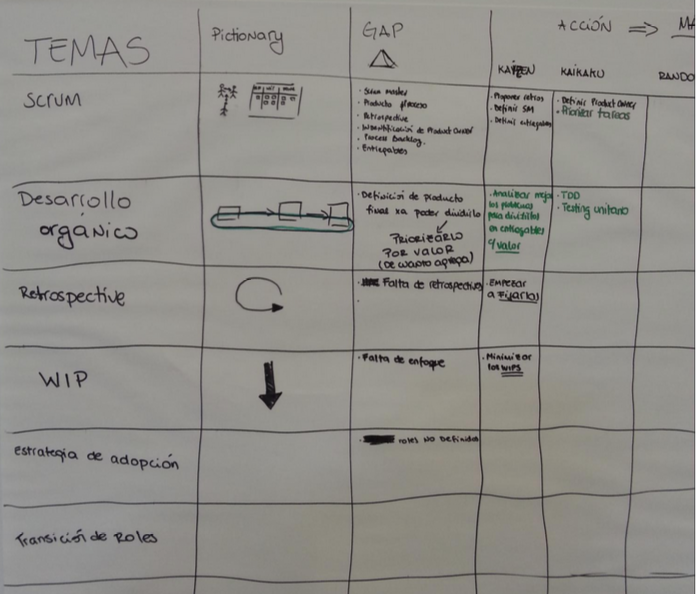 TEMAS
Pictionary
GAP
ACCIÓN ⇒ MA
KAIZEN
KAIKAKU
RANDO
SCRUM
· Scrum master
· Producto proceso
· Retrospective
· Identificación de Product Owner
· Process Backlog.
· Entregables
· Proponer retros
· Definir SM
· Definir entregables
· Definir Product Owner
· Priorizar tareas
Desarrollo
orgánico
· Definición de producto
final xa poder dividirlo
PRIORIZARLO
POR VALOR
(DE CUANTO AGREGA)
· Analizar mejor
los problemas
para dividirlos
en entregables
y valor
· TDD
· Testing unitario
Retrospective
Falta de retrospectivas
· EMPEZAR
a Fijarlas
WIP
· Falta de enfoque
· Minimizar
los WIPS
estrategia de adopción
roles NO Definidos
Transición de Roles